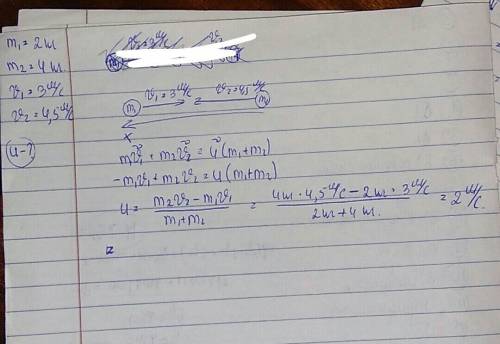 m₁ = 2 кг
m₂ = 4 кг
v₁ = 3 м/с
v₂ = 4,5 м/с
u - ?
v₁ = 3 м/с v₂ = 4,5 м/с
m₁ m₂
x
m₁v⃗₁ + m₂v⃗₂ = u⃗ (m₁+m₂)
-m₁v₁ + m₂v₂ = u (m₁+m₂)
u = (m₂v₂ - m₁v₁)/(m₁+m₂) = (4 кг · 4,5 м/с - 2 кг · 3 м/с)/(2 кг + 4 кг) = 2 м/с